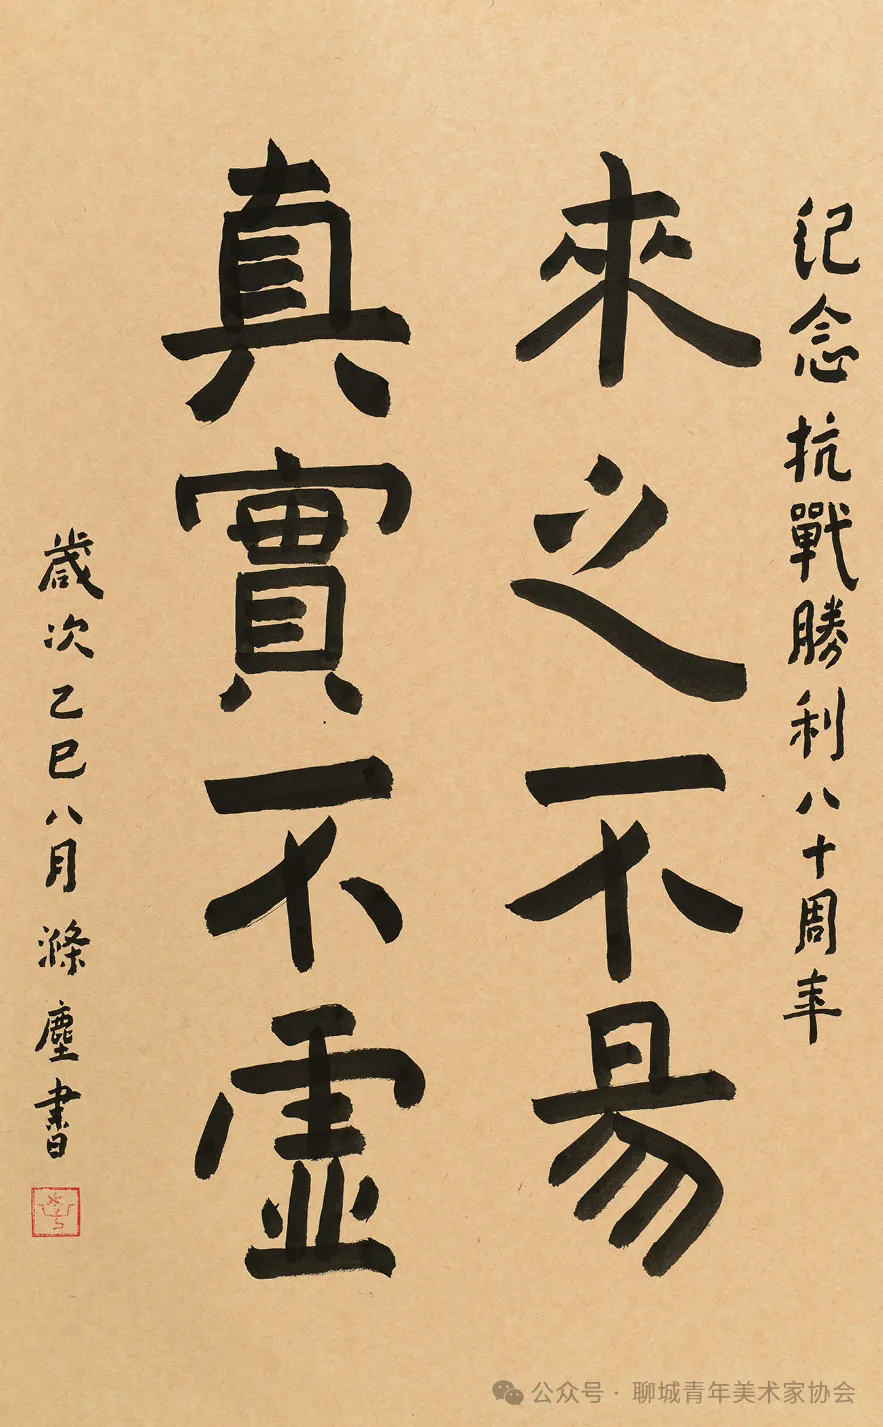 纪念抗戰勝利八十周年
來之不昜
真實不虚
歲次乙巳八月 滌塵書
公众号 · 聊城青年美术家协会